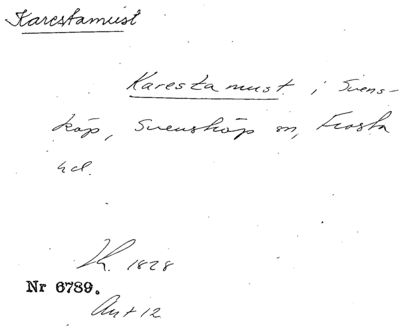 Karestamust
Karestamust i Svens-
köp, Svensköp sn, Frosta
hd.
Lh. 1828
Nr 6789.
Avt 12